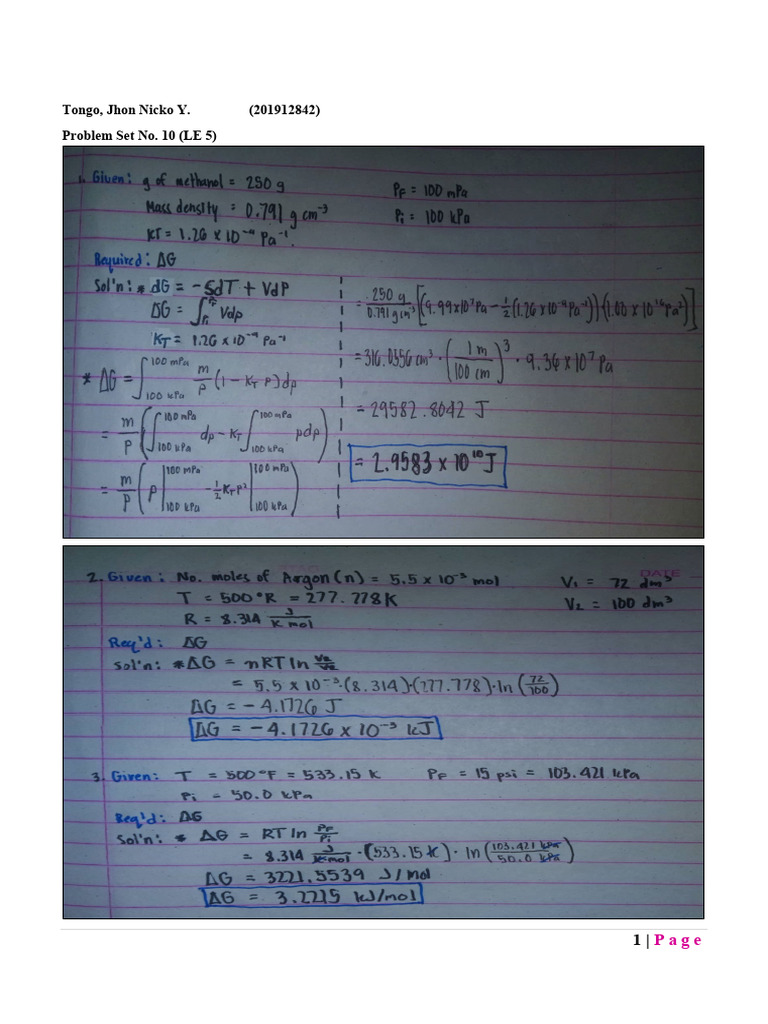 Tongo, Jhon Nicko Y. (201912842)
Problem Set No. 10 (LE 5)
1. Given: g of methanol = 250 g
Pf = 100 mPa
Mass density = 0.791 g cm⁻³
Pi = 100 kPa
KT = 1.26 x 10⁻⁹ Pa⁻¹.
Required: ΔG
Sol'n: * dG = -SdT + VdP
ΔG = ∫ Pi Pf Vdp
KT = 1.26 x 10⁻⁹ Pa⁻¹
* ΔG = ∫ 100 kPa 100 mPa m/ρ (1 - KT P) dp
= m/ρ (∫ 100 kPa 100 mPa dp - KT ∫ 100 kPa 100 mPa pdp)
= m/ρ (P | 100 kPa 100 mPa - 1/2 KT P² | 100 kPa 100 mPa)
= 250 g / 0.791 g cm⁻³ [(9.99x10⁷ Pa - 1/2 (1.26 x 10⁻⁹ Pa⁻¹)) (1.00 x 10¹⁶ Pa²)]
= 316.0556 cm³ · (1 m / 100 cm)³ · 9.36 x 10⁷ Pa
= 29582.8042 J
= 2.9583 x 10¹⁰ J
DATE
2. Given: No. moles of Argon (n) = 5.5 x 10⁻³ mol V₁ = 72 dm³
T = 500°R = 277.778 K V₂ = 100 dm³
R = 8.314 J / K mol
Req'd: ΔG
Sol'n: * ΔG = nRT ln
= 5.5 x 10⁻³·(8.314)·(277.778)·ln (72/100)
ΔG = -4.1726 J
ΔG = -4.1726 x 10⁻³ kJ
3. Given: T = 500°F = 533.15 K PF = 15 psi = 103.421 kPa
Pi = 50.0 kPa
Req'd: ΔG
Sol'n: * ΔG = RT ln PF/Pi
= 8.314 J / K mol · (533.15 K) · ln (103.421 kPa / 50.0 kPa)
ΔG = 3221.5539 J/mol
ΔG = 3.2215 kJ/mol
1 | Page